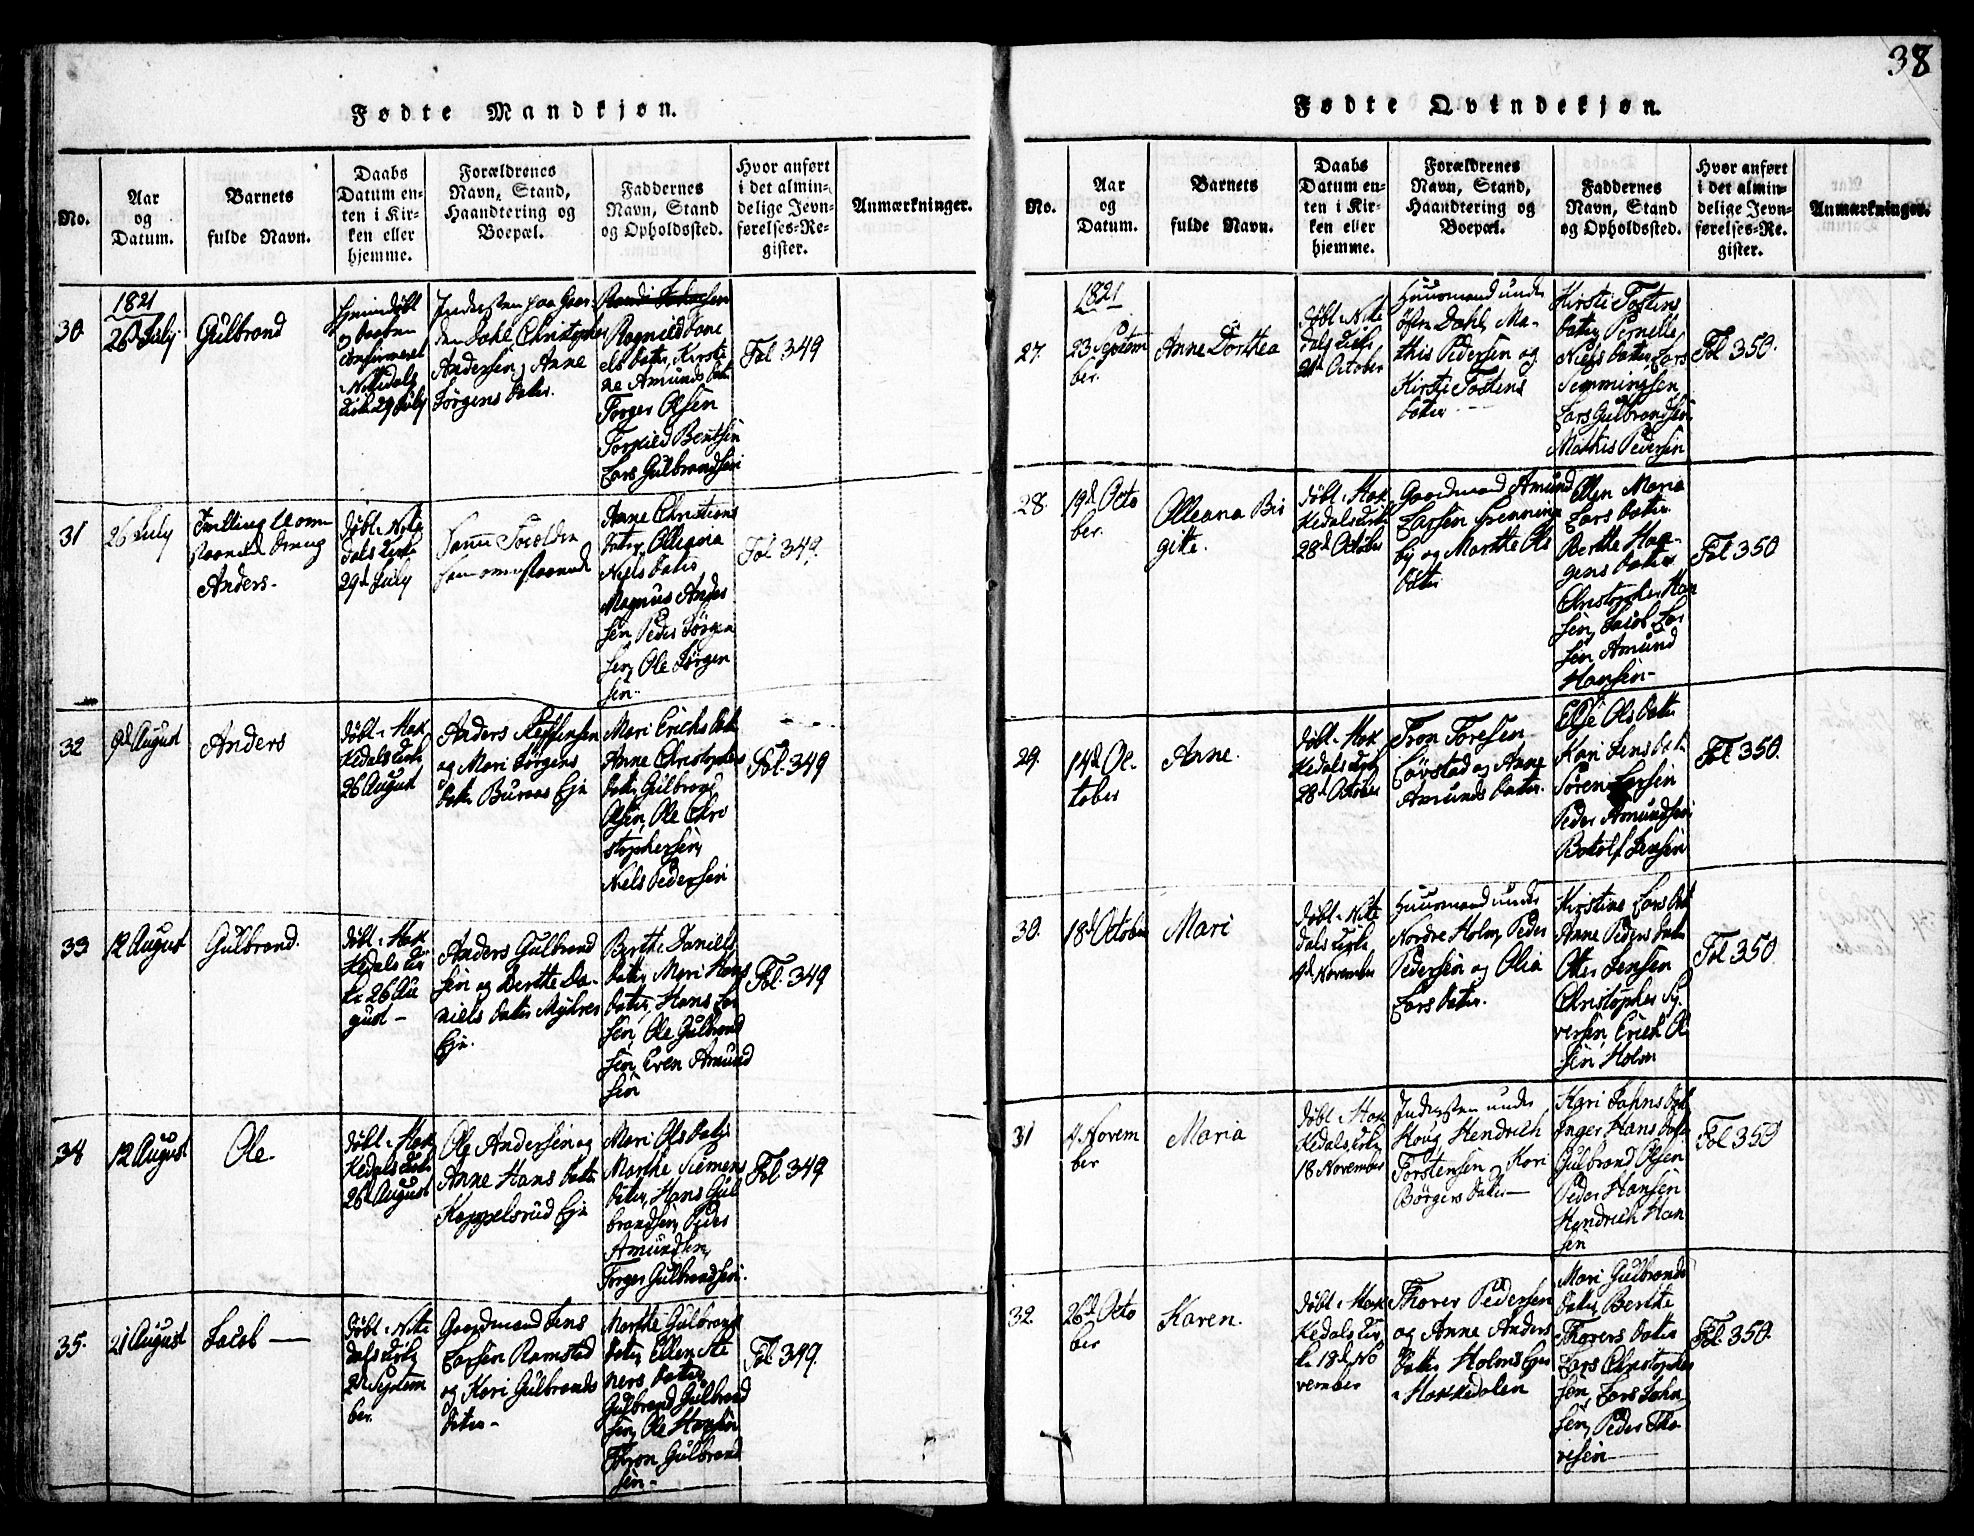 38
Fødte Mandkjøn.
No.
Aar
og
Datum.
Barnets
fulde Navn.
Daabs
Datum en-
ten i Kir-
ken eller
hjemme.
Forældrenes
Navn, Stand,
Haandtering og
Boepæl.
Faddernes
Navn, Stand
og Opholdssted.
Hvor anført
i det almin-
delige Jevn-
førelses-Re-
gister.
Anmærkninger.
30
1821
26 July
Gulbrand
hjemmedøbt
og Daaben
confirmeret
i Nittedals
Kirke 29 July
paa Gaar-
den Dahl Christopher
Andersen og Anne
Jørgens Datter.
Ragnild
Datter, Kirsti
ne Amunds Dat.
Torger Olsen
Torkild Bentsen
Lars Gulbrandsen
Fol 349
31
26 July
Tvilling
Dreng
Anders.
døbt i Nitte
dals Kirke
29d July
Samme Foreldre
som ovenstaaende
Anne Christians
Datter, Olleana
Niels Datter
Magnus Anders
sen, Peder Jørgen
sen, Ole Jørgen
sen.
Fol 349.
32
9d August
Anders
døbt i Hak
kedals Kirke
26 August
Anders Steffensen
og Mari Jørgens
Datter Buraas Eje
Mari Erichs Dat
Anne Christophers
Datter Gulbrand
Olsen, Ole Chri
stophersen,
Niels Pedersen
Fol. 349
33
12 August
Gulbrand.
døbt i Hak
kedals Kir
ke 26 Au
gust
Anders Gulbrand
sen og Berthe Da-
niels Datter Myhrer
Eje.
Berthe Daniels
Datter, Mari Hans
Datter, Hans Lar
sen, Ole Gulbrand
sen, Even Amund
sen
Fol. 349
34
12 August
Ole.
døbt i Hak
kedals Kirke
26d August
Ole Andersen og
Anne Hans Datter
Kappelsrud Eje
Mari Ols Datter
Marthe Siemens
Datter, Hans Gul
brandsen, Peder
Amundsen,
Torger Gulbrandsen.
Fol. 349
35.
21 August
Jacob
døbt i Nitte
dals Kirke
2d Septem
ber.
Gaardmand Jens
Larsen Ramstad
og Kari Gulbrands
Datter
Marthe Gulbrands
Datter, Ellen
Datter,
Gulbrand Gulbrand
sen, Ole Hansen
Thron Gulbrand
sen.
Fol 349.
Fødte Qvindekjøn.
No.
Aar
og
Datum.
Barnets
fulde Navn.
Daabs
Datum en-
ten i Kir-
ken eller
hjemme.
Forældrenes
Navn, Stand,
Haandtering og
Boepæl.
Faddernes
Navn, Stand
og Opholdssted.
Hvor anført
i det almin-
delige Jevn-
førelses-Re-
gister.
Anmærkninger.
27.
1821
23 Septem
ber.
Anne Dorthea
døbt i Nitte
dals Kirke,
21d October
Huusmand under
Østre Dahl, Ma-
this Pedersen og
Kirsti Tostens
Datter
Kirsti Tostens
Datter, Pernelle
Niels Datter, Lars
Semmingsen
Lars Gulbrandsen
Mathis Pedersen
Fol 350.
28.
19d Octo
ber.
Olleana Bir
gitte.
døbt i Hak
kedals Kirke
28d October
Gaardmand Amund
Larsen Grenning
by og Marthe Ols
Datter
Ellen Maria
Lars Datter
Berthe Haa-
gens Datter
Christopher Han
sen, Jacob Lar
sen Amund
Hansen
Fol 350
29.
14d Oc-
tober
Anne.
døbt i Hak
kedals Kirke
28d October
Tron Toresen
Løvstad og Anne
Amunds Datter.
Else Ols Datter
Kari Jens Dat.
Søren Larsen
Peder Amundsen
Botolf Jensen
Fol 350.
30.
18d October
Mari
døbt i Nitte
dals Kirke,
4d November
Huusmand under
Nordre Holm, Peder
Pedersen og Olia
Lars Datter.
Kirstine Lars Dat
Anne Peders Datter
Otter Jensen
Christopher Sy-
versen, Erich Ol
sen Holm
Fol 350
31
4 Novem
ber
Maria
døbt i Hak
kedals Kirke
18 November
under
Houg Hendrich
Torstensen, Kari
Børgers Datter
Kari Johns Dat
Inger Hans Datter
Gulbrand Olsen
Peder Hansen
Hendrich Han
sen
Fol 350
32.
26d Octo
ber
Karen.
døbt i Hak
kedals Kir
ke 18d No
vember
Thorer Pedersen
og Anne Anders
Datter Holms Eje
i Hakkedalen
Mari Gulbrands
Datter, Berthe
Thorers Datter
Lars Christopher
sen, Lars John
sen, Peder Tho
resen
Fol. 350.